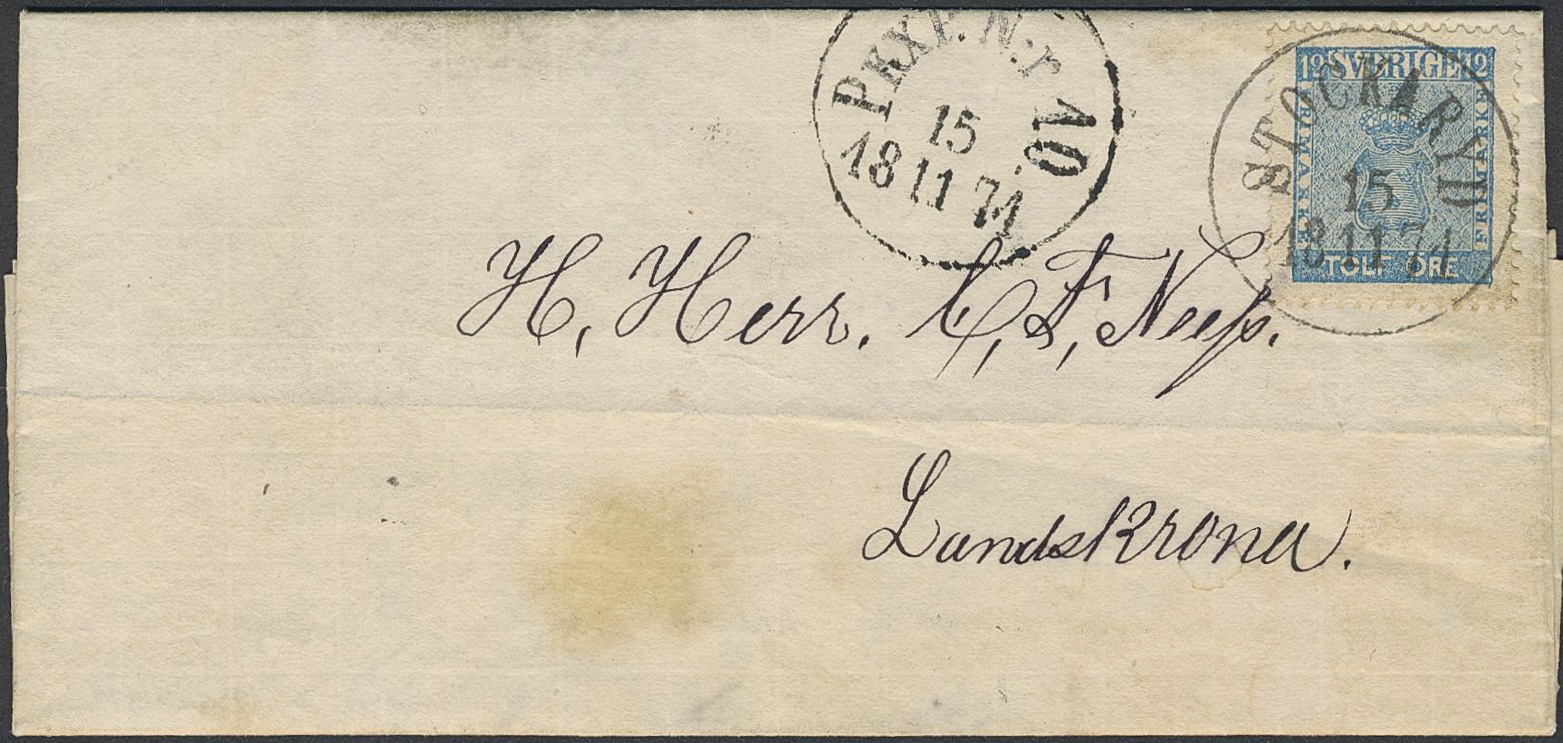 PKXP. N:r 10
15
18 11 71
12 SVERIGE 12
FRIMÄRKE
FRIMÄRKE
TOLF ÖRE
STOCKARYD
15
18 11 71
H. Herr. C, F, Neess.
Landskrona.